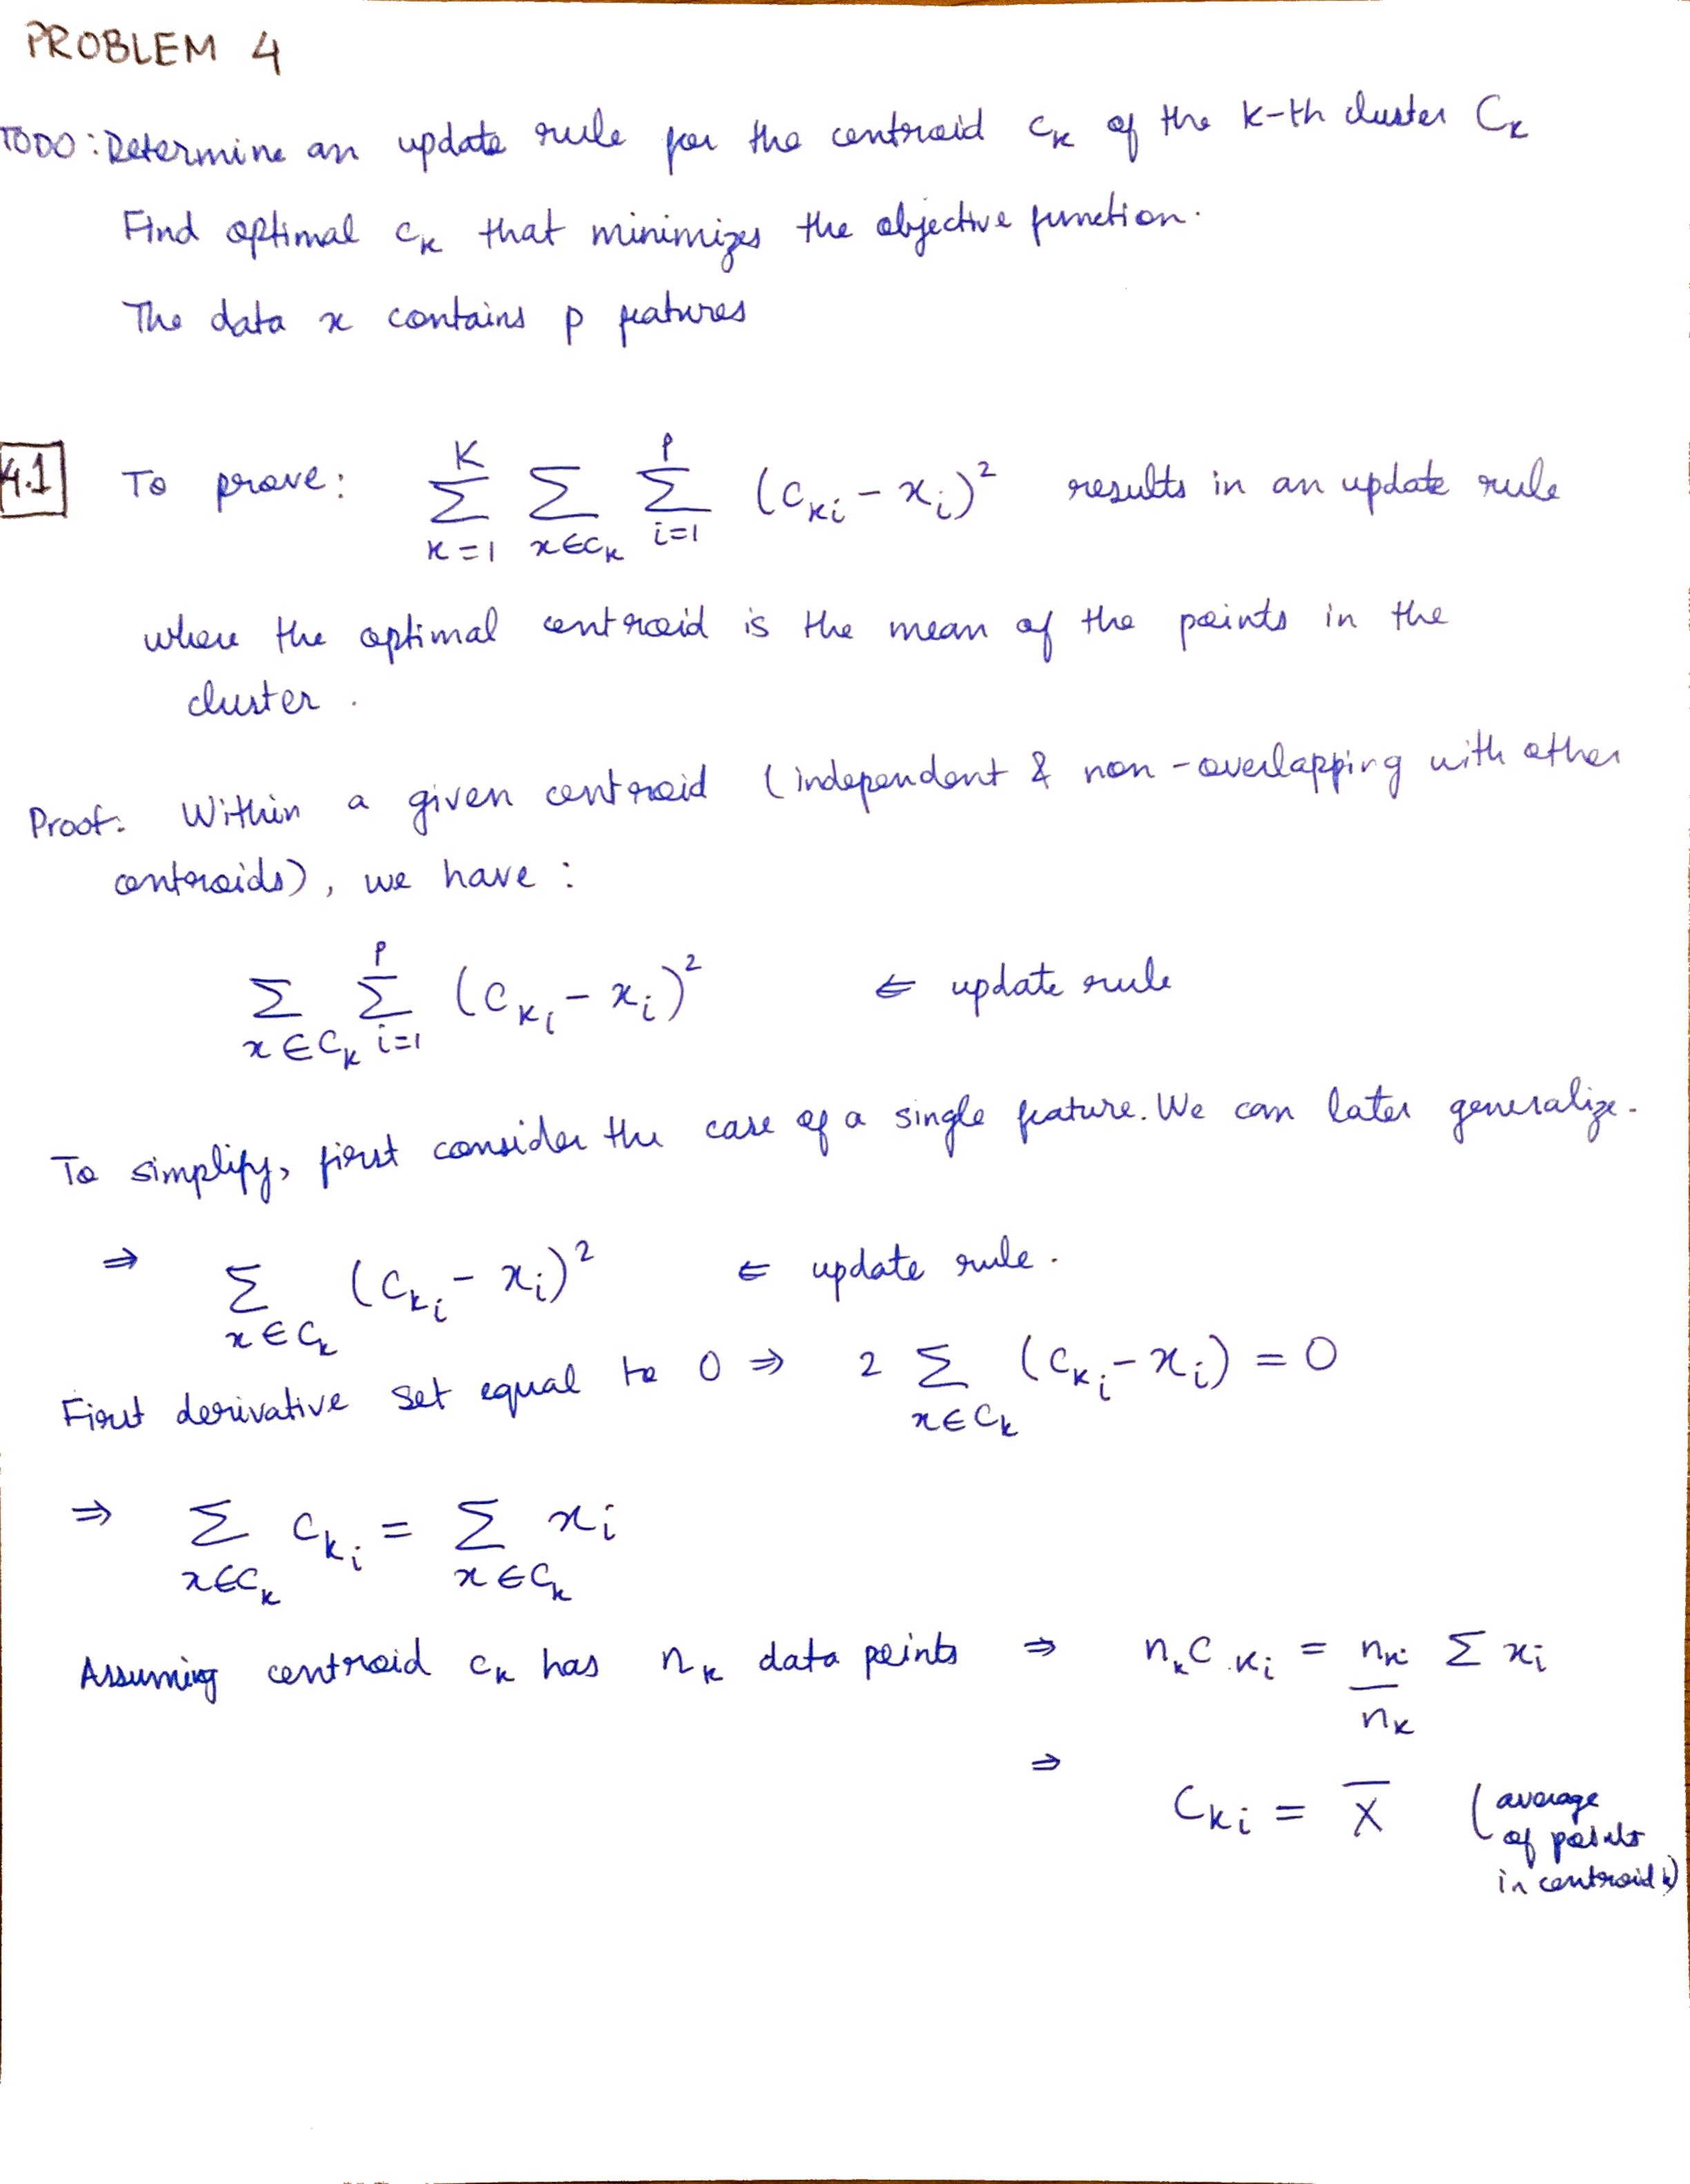 PROBLEM 4
TODO: Determine an update rule for the centroid c_k of the k-th cluster C_k
Find optimal c_k that minimizes the objective function.
The data x contains p features
4.1 To prove: \sum_{k=1}^{K} \sum_{x \in C_k} \sum_{i=1}^{p} (c_{ki} - x_i)^2 results in an update rule
where the optimal centroid is the mean of the points in the
cluster.
Proof: Within a given centroid (independent & non-overlapping with other
centroids), we have:
\sum_{x \in C_k} \sum_{i=1}^{p} (c_{k_i} - x_i)^2 ⇐ update rule
To simplify, first consider the case of a single feature. We can later generalize.
⇒ \sum_{x \in C_k} (c_{k_i} - x_i)^2 ⇐ update rule.
First derivative set equal to 0 ⇒ 2 \sum_{x \in C_k} (c_{k_i} - x_i) = 0
⇒ \sum_{x \in C_k} c_{k_i} = \sum_{x \in C_k} x_i
Assuming centroid c_k has n_k data points ⇒ n_k c_{ki} = \frac{n_k}{n_k} Σ x_i
⇒ c_{ki} = \overline{X} (average
of points
in centroid k)